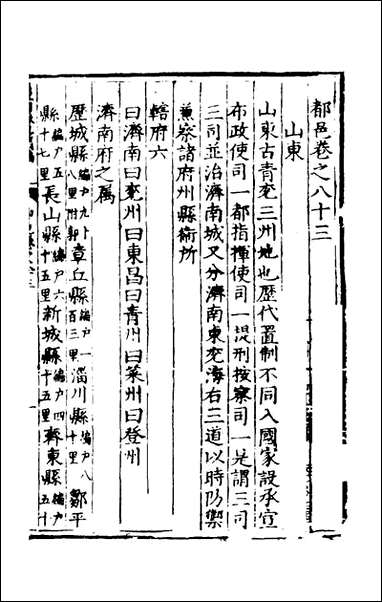 都邑卷之八十三
山東
山東古青兗三州地也歷代置制不同入國家設承宣
布政使司一都指揮使司一提刑按察司一是謂三司
三司並治濟南城又分濟南東兗海右三道以時防禦
兼察諸府州縣衛所
轄府六
曰濟南曰兗州曰東昌曰青州曰萊州曰登州
濟南府之属
歷城縣編户九十八里附郭章丘縣編户一百三里淄川縣編户八十里鄒平
縣編户五十七里長山縣編户六十五里新城縣編户四十五里齊東縣編户五十